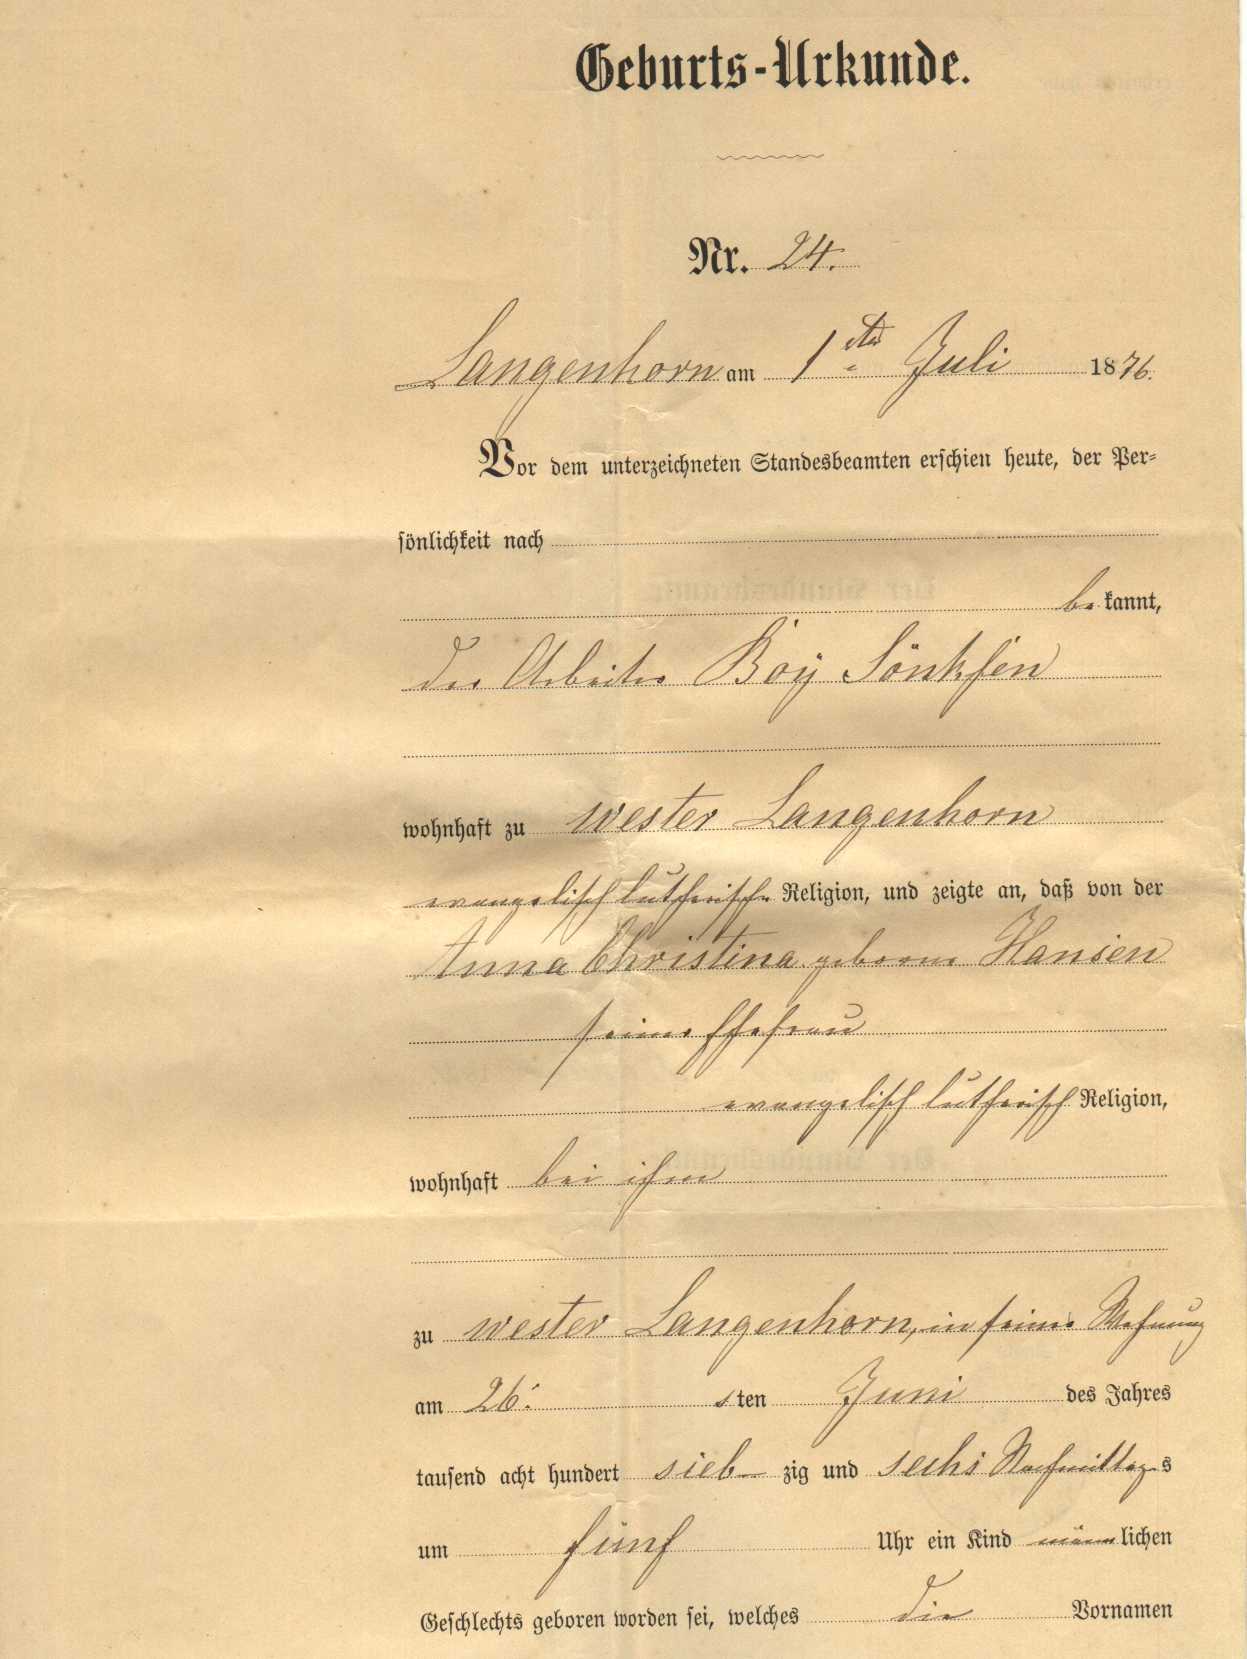 Geburts-Urkunde.
Nr. 24.
Langenhorn am 1ten Juli 1876.
Vor dem unterzeichneten Standesbeamten erschien heute, der Per-
sönlichkeit nach
bekannt,
der Arbeiter Boÿ Sönksen
wohnhaft zu wester Langenhorn
evangelisch lutherische Religion, und zeigte an, daß von der
Anna Christina geborne Hansen
seine Ehefrau
evangelisch lutherisch Religion,
wohnhaft bei ihm
zu wester Langenhorn, in seine Wohnung
am 26. sten Juni des Jahres
tausend acht hundert sieb zig und sechs Nachmittags
um fünf Uhr ein Kind männlichen
Geschlechts geboren worden sei, welches die Vornamen